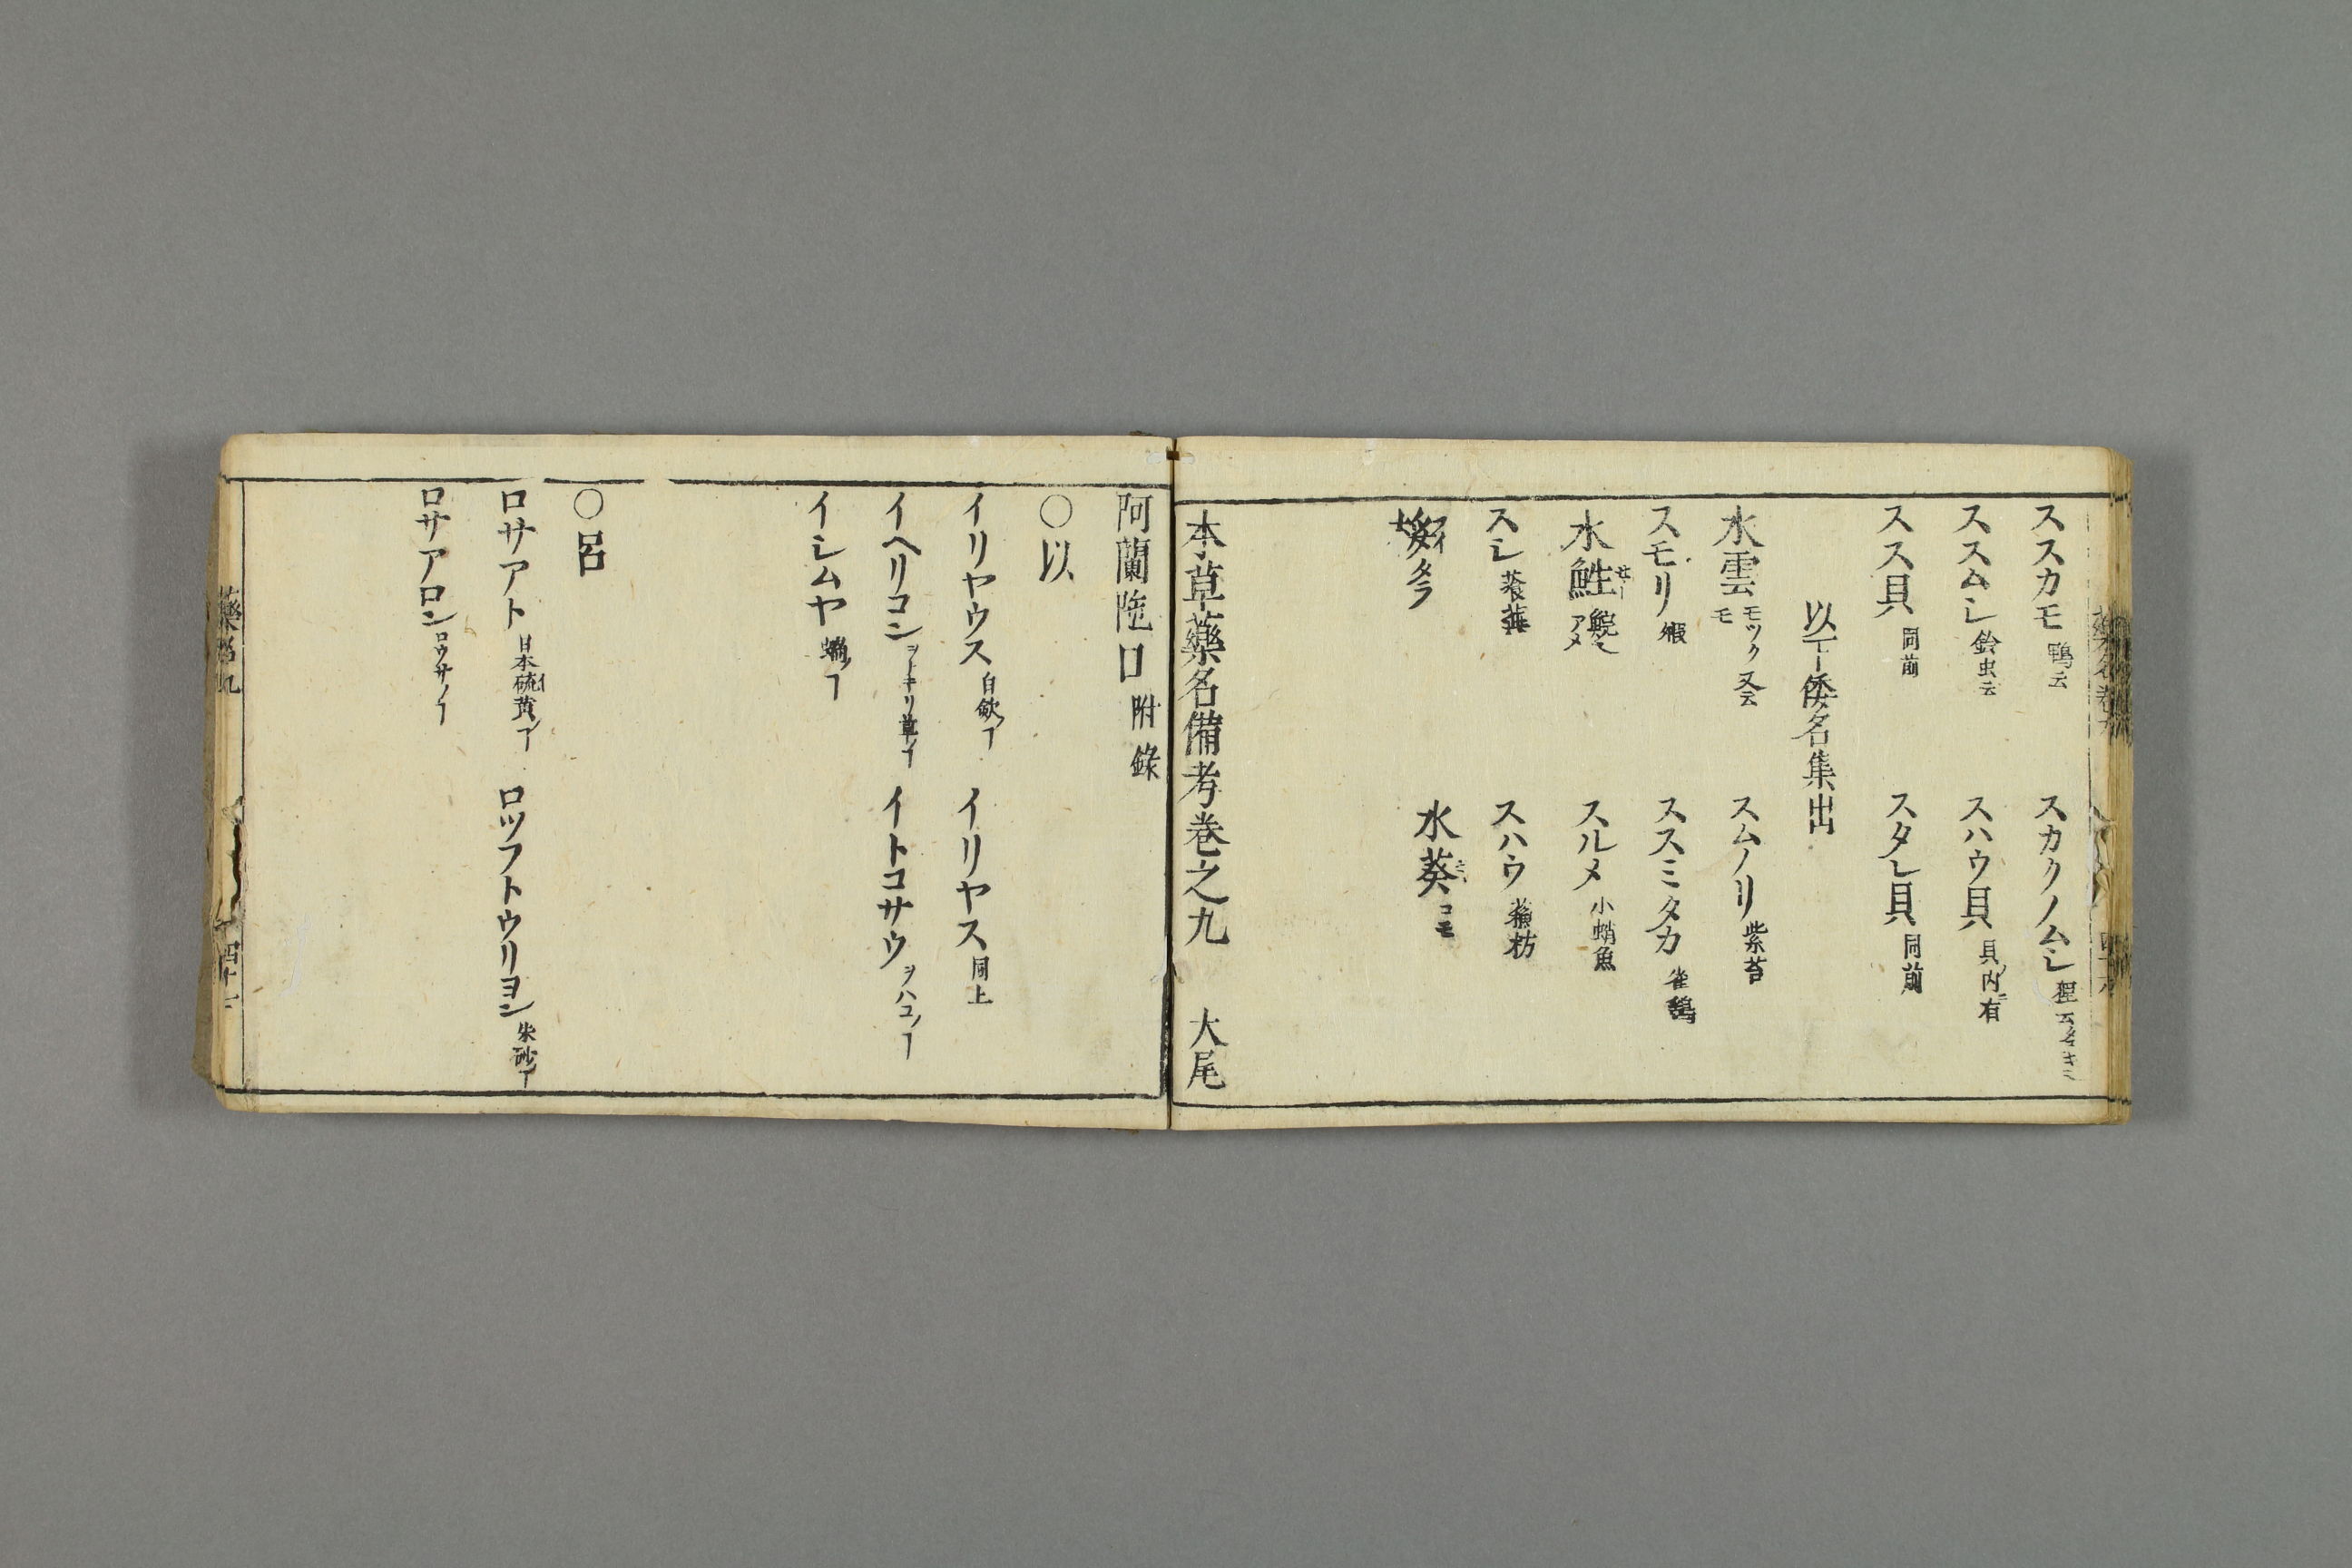 ススカモ 鴨云 スカクノムシ 狸云
ススムシ 鈴虫云 スハウ貝 貝ノ内ニ有
スス貝 同前 スタレ貝 同前
以下倭名集出
水雲 モツク又云モ スムノリ 紫苔
スモリ 㲉 ススミタカ 雀鷂
水鮏 鯢アメ スルメ 小蛸魚
スシ スハウ 蘇枋
水葵 コモ
本草藥名備考巻之九 大尾
阿蘭陀口 附錄
〇以
イリヤウス 白歛ノヿ イリヤス 同上
イヘリコン ヲトキリ草ノヿ イトコサウ ヲハコノヿ
イシムヤ 蝋ノヿ
〇呂
ロサアト 日本硫黄ノヿ ロツフトウリヨン 朱砂ノヿ
ロサアロン ロウサノヿ